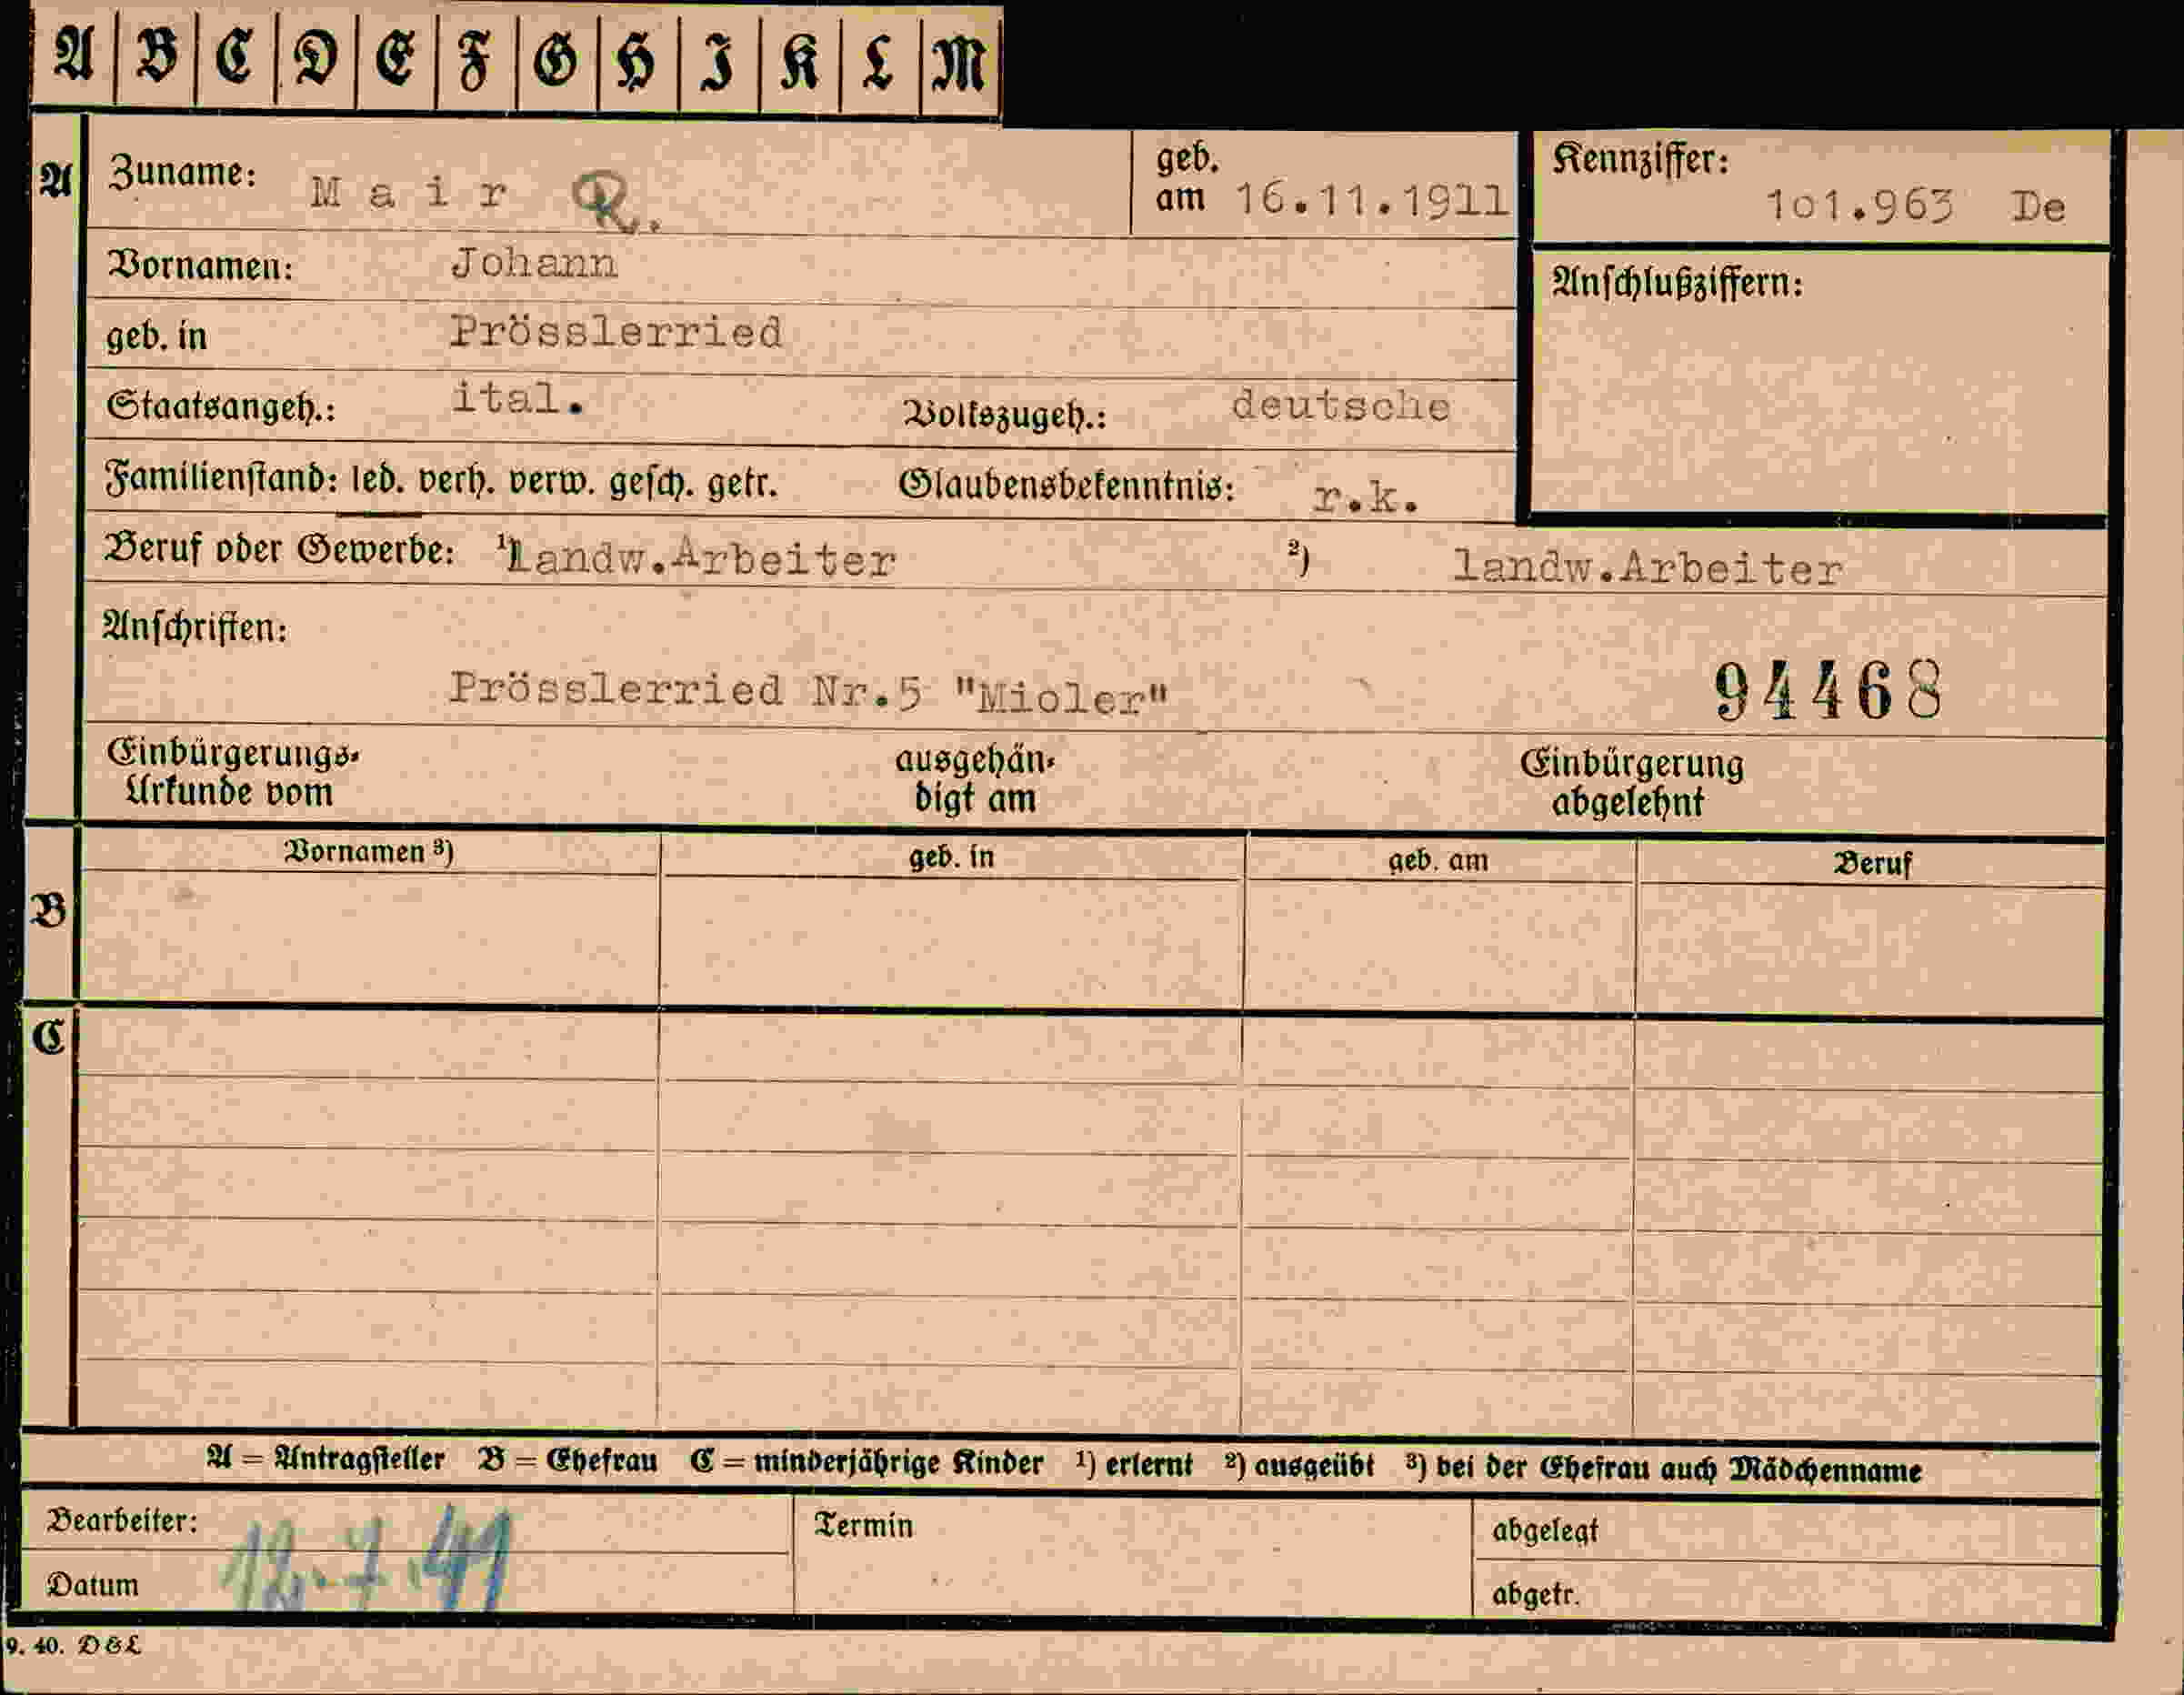 A B C D E F G H I K L M
A Zuname: Mair R. geb. am 16.11.1911 Kennziffer: 101.963 De
Vornamen: Johann
Anschlußziffern:
geb. in Prösslerried
Staatsangeh.: ital. Volkszugeh.: deutsche
Familienstand: led. verh. verw. gesch. getr. Glaubensbekenntnis: r.k.
Beruf oder Gewerbe: ¹) landw.Arbeiter ²) landw.Arbeiter
Anschriften:
Prösslerried Nr.5 "Mioler" 94468
Einbürgerungs- ausgehän- Einbürgerung
Urkunde vom digt am abgelehnt
Vornamen ³) geb. in geb. am Beruf
B
C
A = Antragsteller B = Ehefrau C = minderjährige Kinder ¹) erlernt ²) ausgeübt ³) bei der Ehefrau auch Mädchenname
Bearbeiter: Termin abgelegt
12.7.41
Datum abgetr.
9. 40. D&L